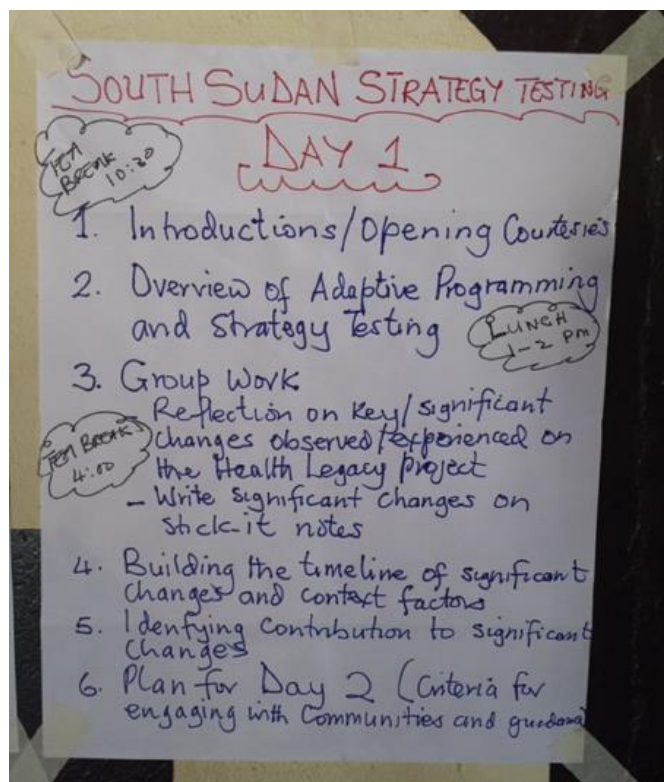 SOUTH SUDAN STRATEGY TESTING
DAY 1
TEA
BREAK
10:30
1. Introductions/Opening Courtesies
2. Overview of Adaptive Programming
and Strategy Testing
LUNCH
1-2 pm
3. Group Work
- Reflection on key/significant
changes observed/experienced on
the Health Legacy Project
TEA BREAK
4:00
- Write significant changes on
stick-it notes
4. Building the timeline of significant
changes and context factors
5. Idenfying contribution to significant
changes
6. Plan for Day 2 (Criteria for
engaging with Communities and